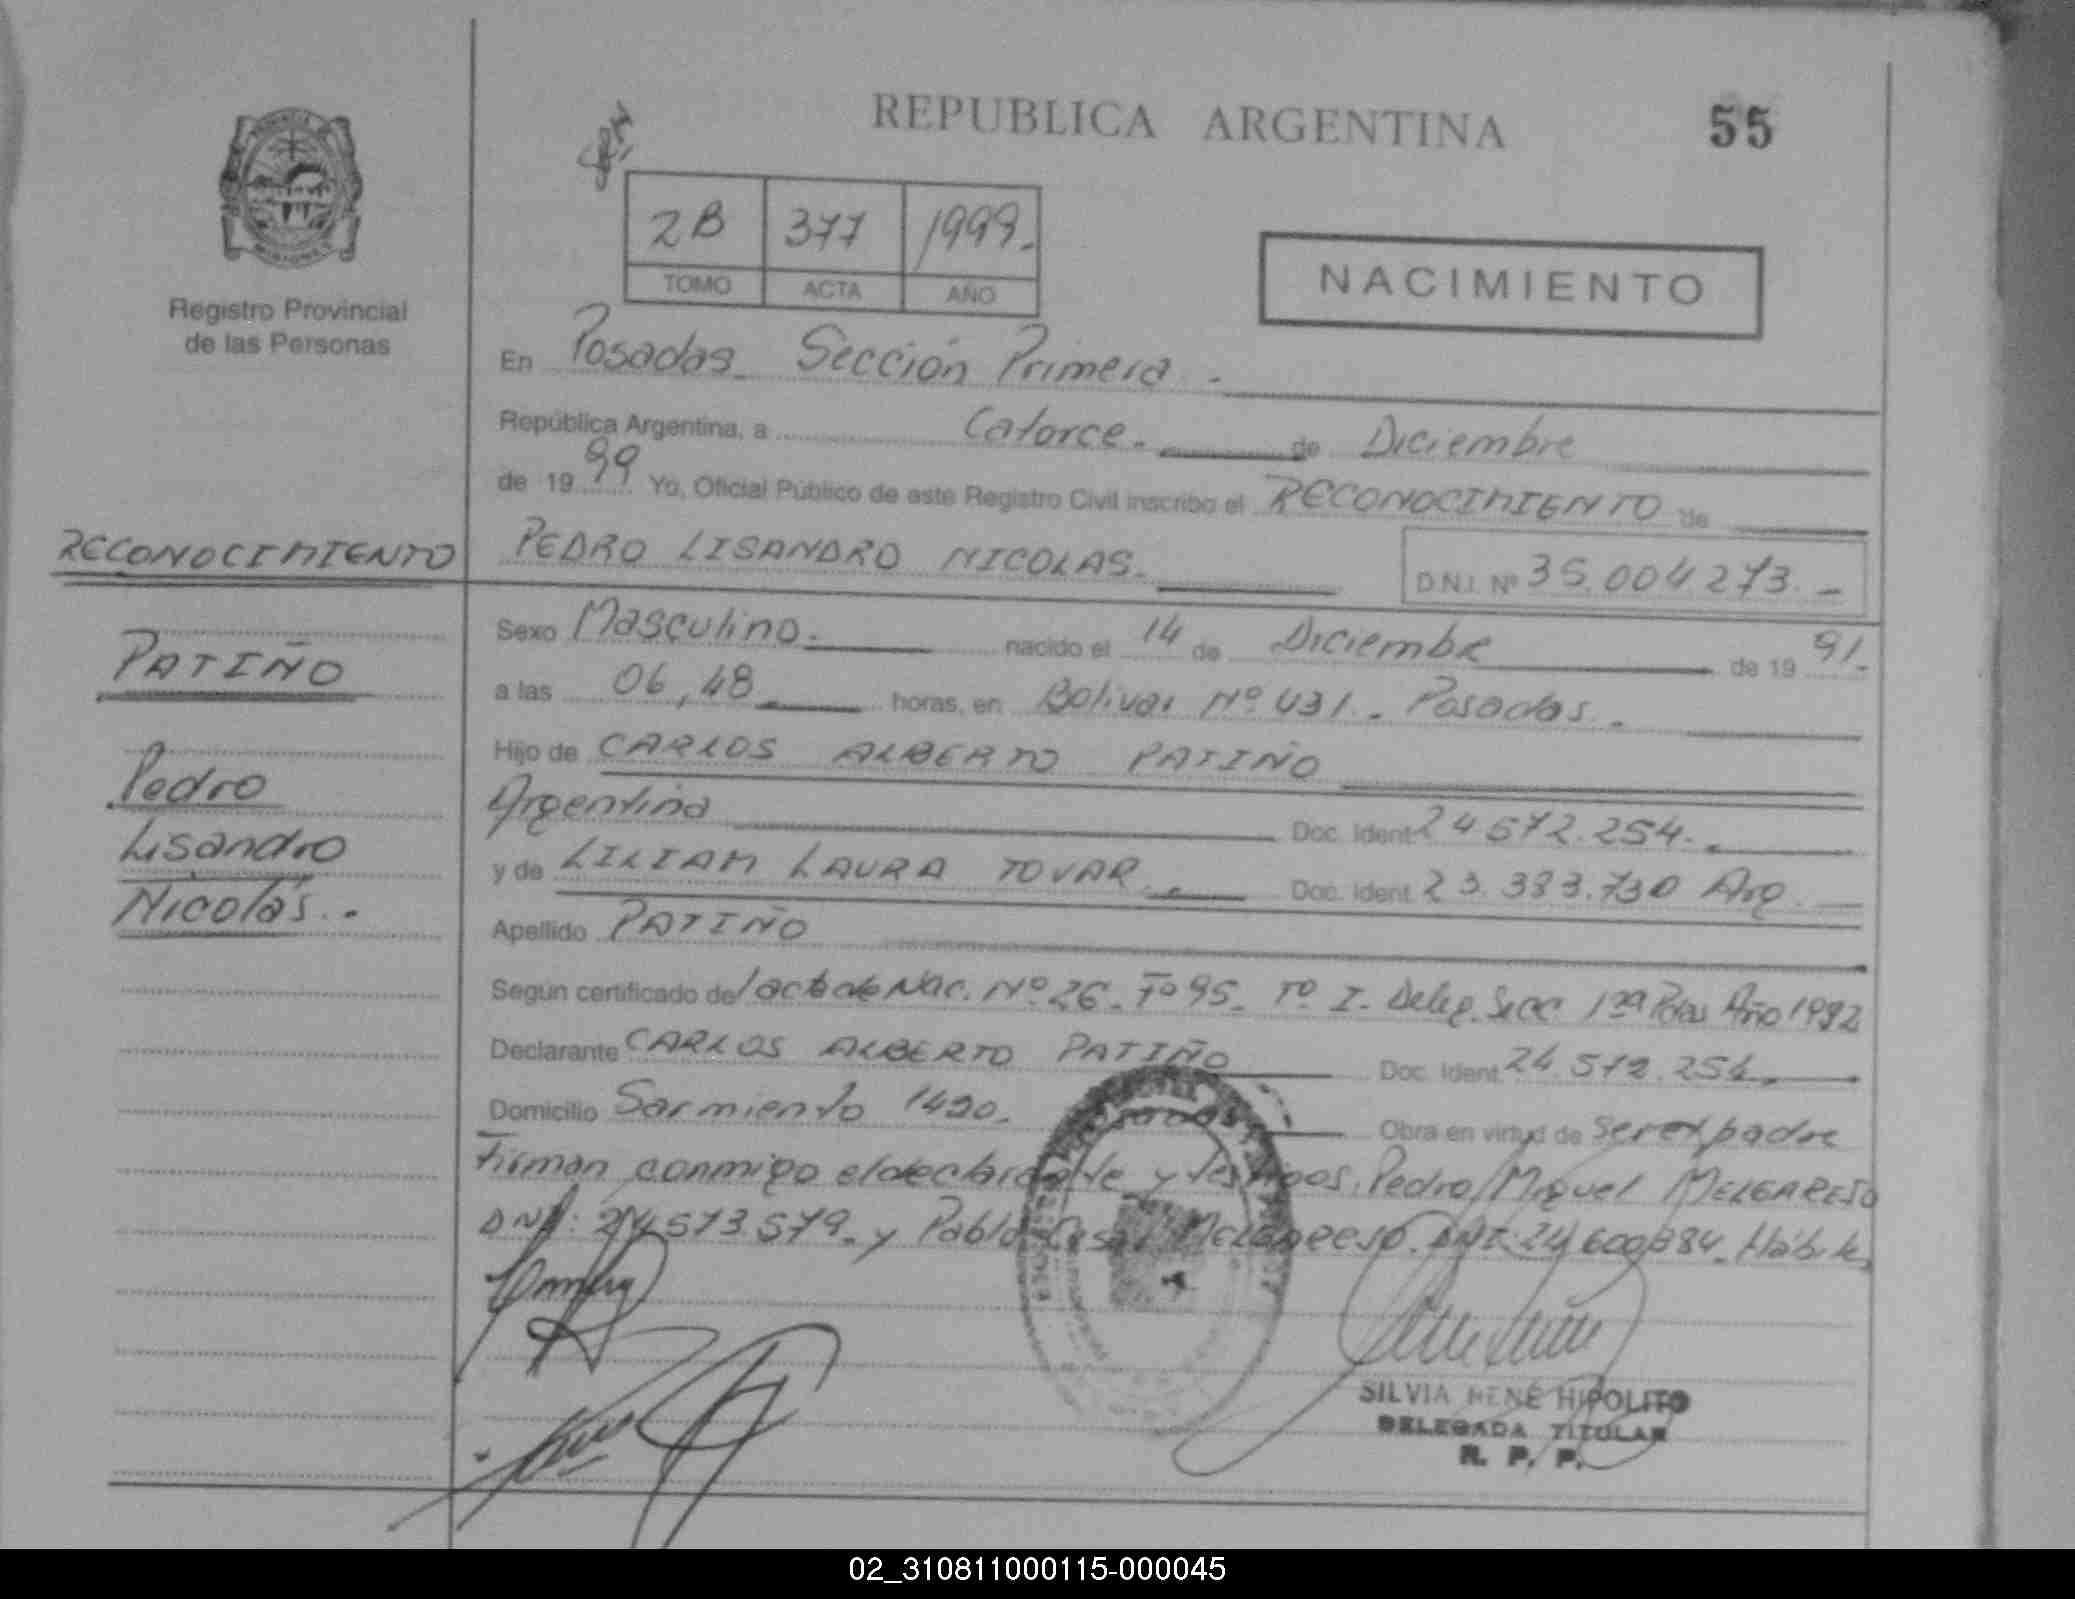 REPUBLICA ARGENTINA
55
2B 377 1999.
TOMO ACTA AÑO
NACIMIENTO
Registro Provincial
de las Personas
En Posadas Sección Primera.
República Argentina, a Catorce. de Diciembre
de 1999 Yo, Oficial Público de este Registro Civil inscribo el RECONOCIMIENTO de
RECONOCIMIENTO
PEDRO LISANDRO NICOLAS. D.N.I. Nº 35.004.273.-
PATIÑO
Pedro
Lisandro
Nicolás.
Sexo Masculino. nacido el 14 de Diciembre de 1991.
a las 06,48 horas, en Bolivar Nº 431. Posadas.
Hijo de CARLOS ALBERTO PATIÑO
Argentina Doc. Ident. 24.572.254.
y de LILIAM LAURA TOVAR. Doc. Ident. 23.383.730 Arg.
Apellido PATIÑO
Según certificado de/ acta de Nac. Nº 26. Fº 95. Tº I. Deleg. Secc 1ra Pdas Año 1992
Declarante CARLOS ALBERTO PATIÑO Doc. Ident. 24.572.254.
Domicilio Sarmiento 1420. Obra en virtud de ser el padre
Firman conmigo el declarante y testigos. Pedro Miguel MELGAREJO
DNI: 24.573.579. y Pablo Cesar MELGAREJO. DNI: 24.600.384. Hábiles
SILVIA RENÉ HIPOLITO
DELEGADA TITULAR
R. P. P.
02_310811000115-000045